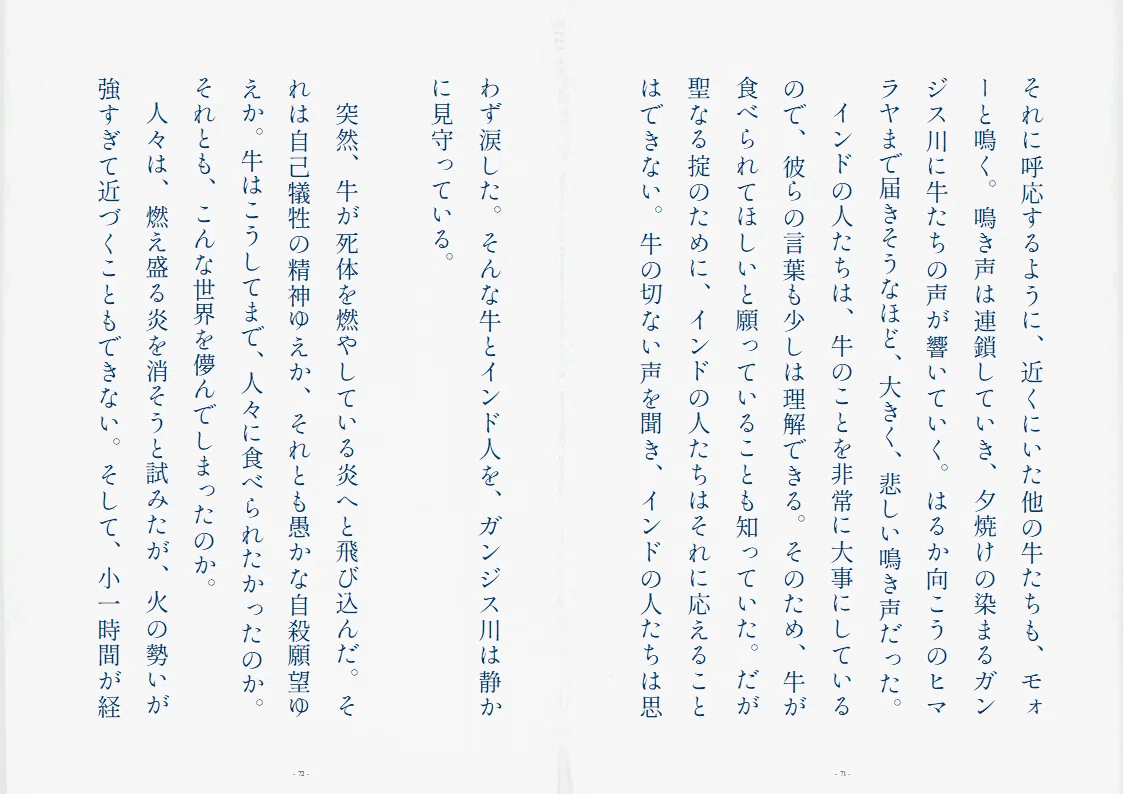 それに呼応するように、近くにいた他の牛たちも、モォ
ーと鳴く。鳴き声は連鎖していき、夕焼けの染まるガン
ジス川に牛たちの声が響いていく。はるか向こうのヒマ
ラヤまで届きそうなほど、大きく、悲しい鳴き声だった。
インドの人たちは、牛のことを非常に大事にしている
ので、彼らの言葉も少しは理解できる。そのため、牛が
食べられてほしいと願っていることも知っていた。だが
聖なる掟のために、インドの人たちはそれに応えること
はできない。牛の切ない声を聞き、インドの人たちは思
- 71 -
わず涙した。そんな牛とインド人を、ガンジス川は静か
に見守っている。
突然、牛が死体を燃やしている炎へと飛び込んだ。そ
れは自己犠牲の精神ゆえか、それとも愚かな自殺願望ゆ
えか。牛はこうしてまで、人々に食べられたかったのか。
それとも、こんな世界を儚んでしまったのか。
人々は、燃え盛る炎を消そうと試みたが、火の勢いが
強すぎて近づくこともできない。そして、小一時間が経
- 72 -